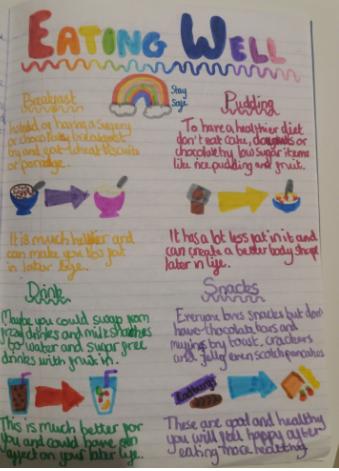 EATING WELL
Stay
Safe
Breakfast
Instead of having a sugery
or chocolatey breakfast
try and eat wheat biscuits
or poridge.
It is much better and
can make you less fat
in later life.
Pudding
To have a healthier diet
don't eat cake, doughnuts or
chocolate try low sugar items
like rice pudding and fruit.
It has a lot less fat in it and
can create a better body shape
later in life.
Drink
Maybe you could swap from
fizzy drinks and milkshakes
to water and sugar free
drinks with fruit in.
This is much better for
you and could have an
affect on your later life..
Snacks
Everyone loves snacks but don't
have chocolate bars and
try toast, crackers
and jelly even scotch pancakes
Cadburys
These are good and healthy
you will feel happy after
eating more healthily